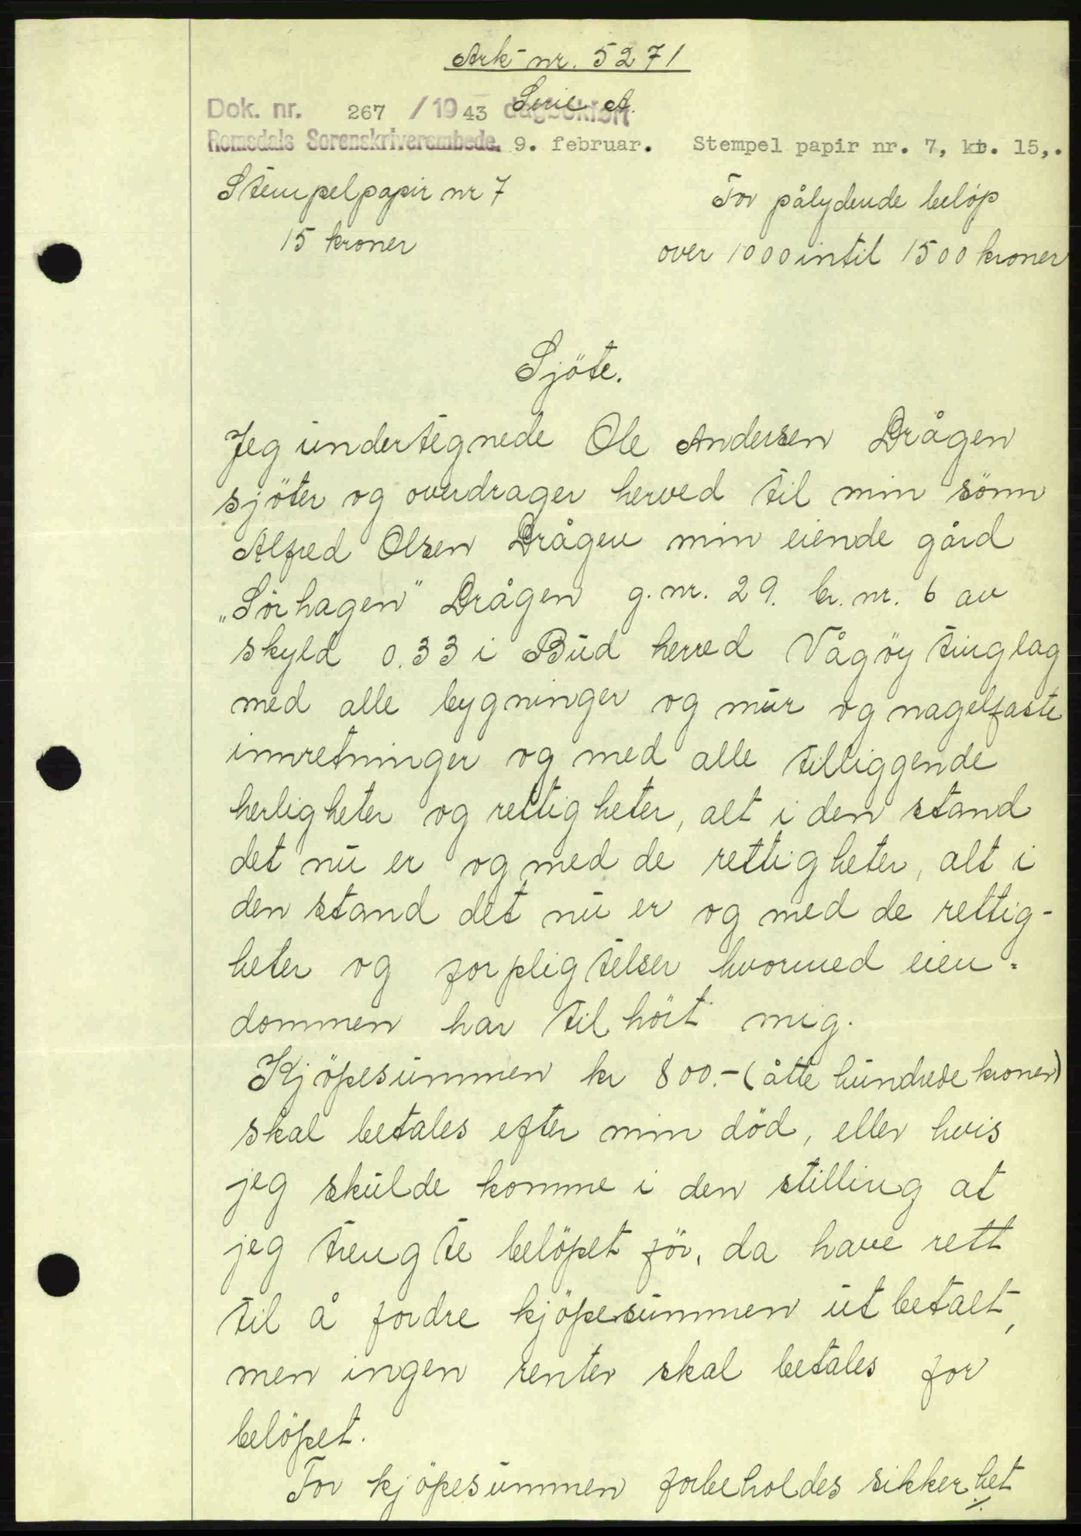 Ark nr. 5271
Serie A.
Dok. nr. 267 / 1943 dagbokført
Romsdals Sorenskriverembede. 9. februar. Stempel papir nr. 7, kr. 15,.
Stempelpapir nr 7 For pålydende beløp
15 kroner over 1000 intil 1500 kroner
Sjöte.
Jeg undertegnede Ole Andersen Drågen
sjöter og overdrager herved til min sönn
Alfred Olsen Drågen min eiende gård
„Sörhagen" Drågen g.nr. 29. br.nr. 6 av
skyld 0.33 i Bud herred Vågöy tinglag
med alle bygninger og mur og nagelfaste
innretninger og med alle tilliggende
herligheter og rettigheter, alt i den stand
det nu er og med de rettigheter, alt i
den stand det nu er og med de rettig-
heter og forpligtelser hvormed eien-
dommen har tilhört mig.
Kjöpesummen kr 800.- (åtte hundrede kroner)
skal betales efter min död, eller hvis
jeg skulde komme i den stilling at
jeg trengte belöpet för, da have rett
til å fordre kjöpesummen utbetalt,
men ingen renter skal betales for
belöpet.
For kjöpesummen forbeholdes sikkerhet